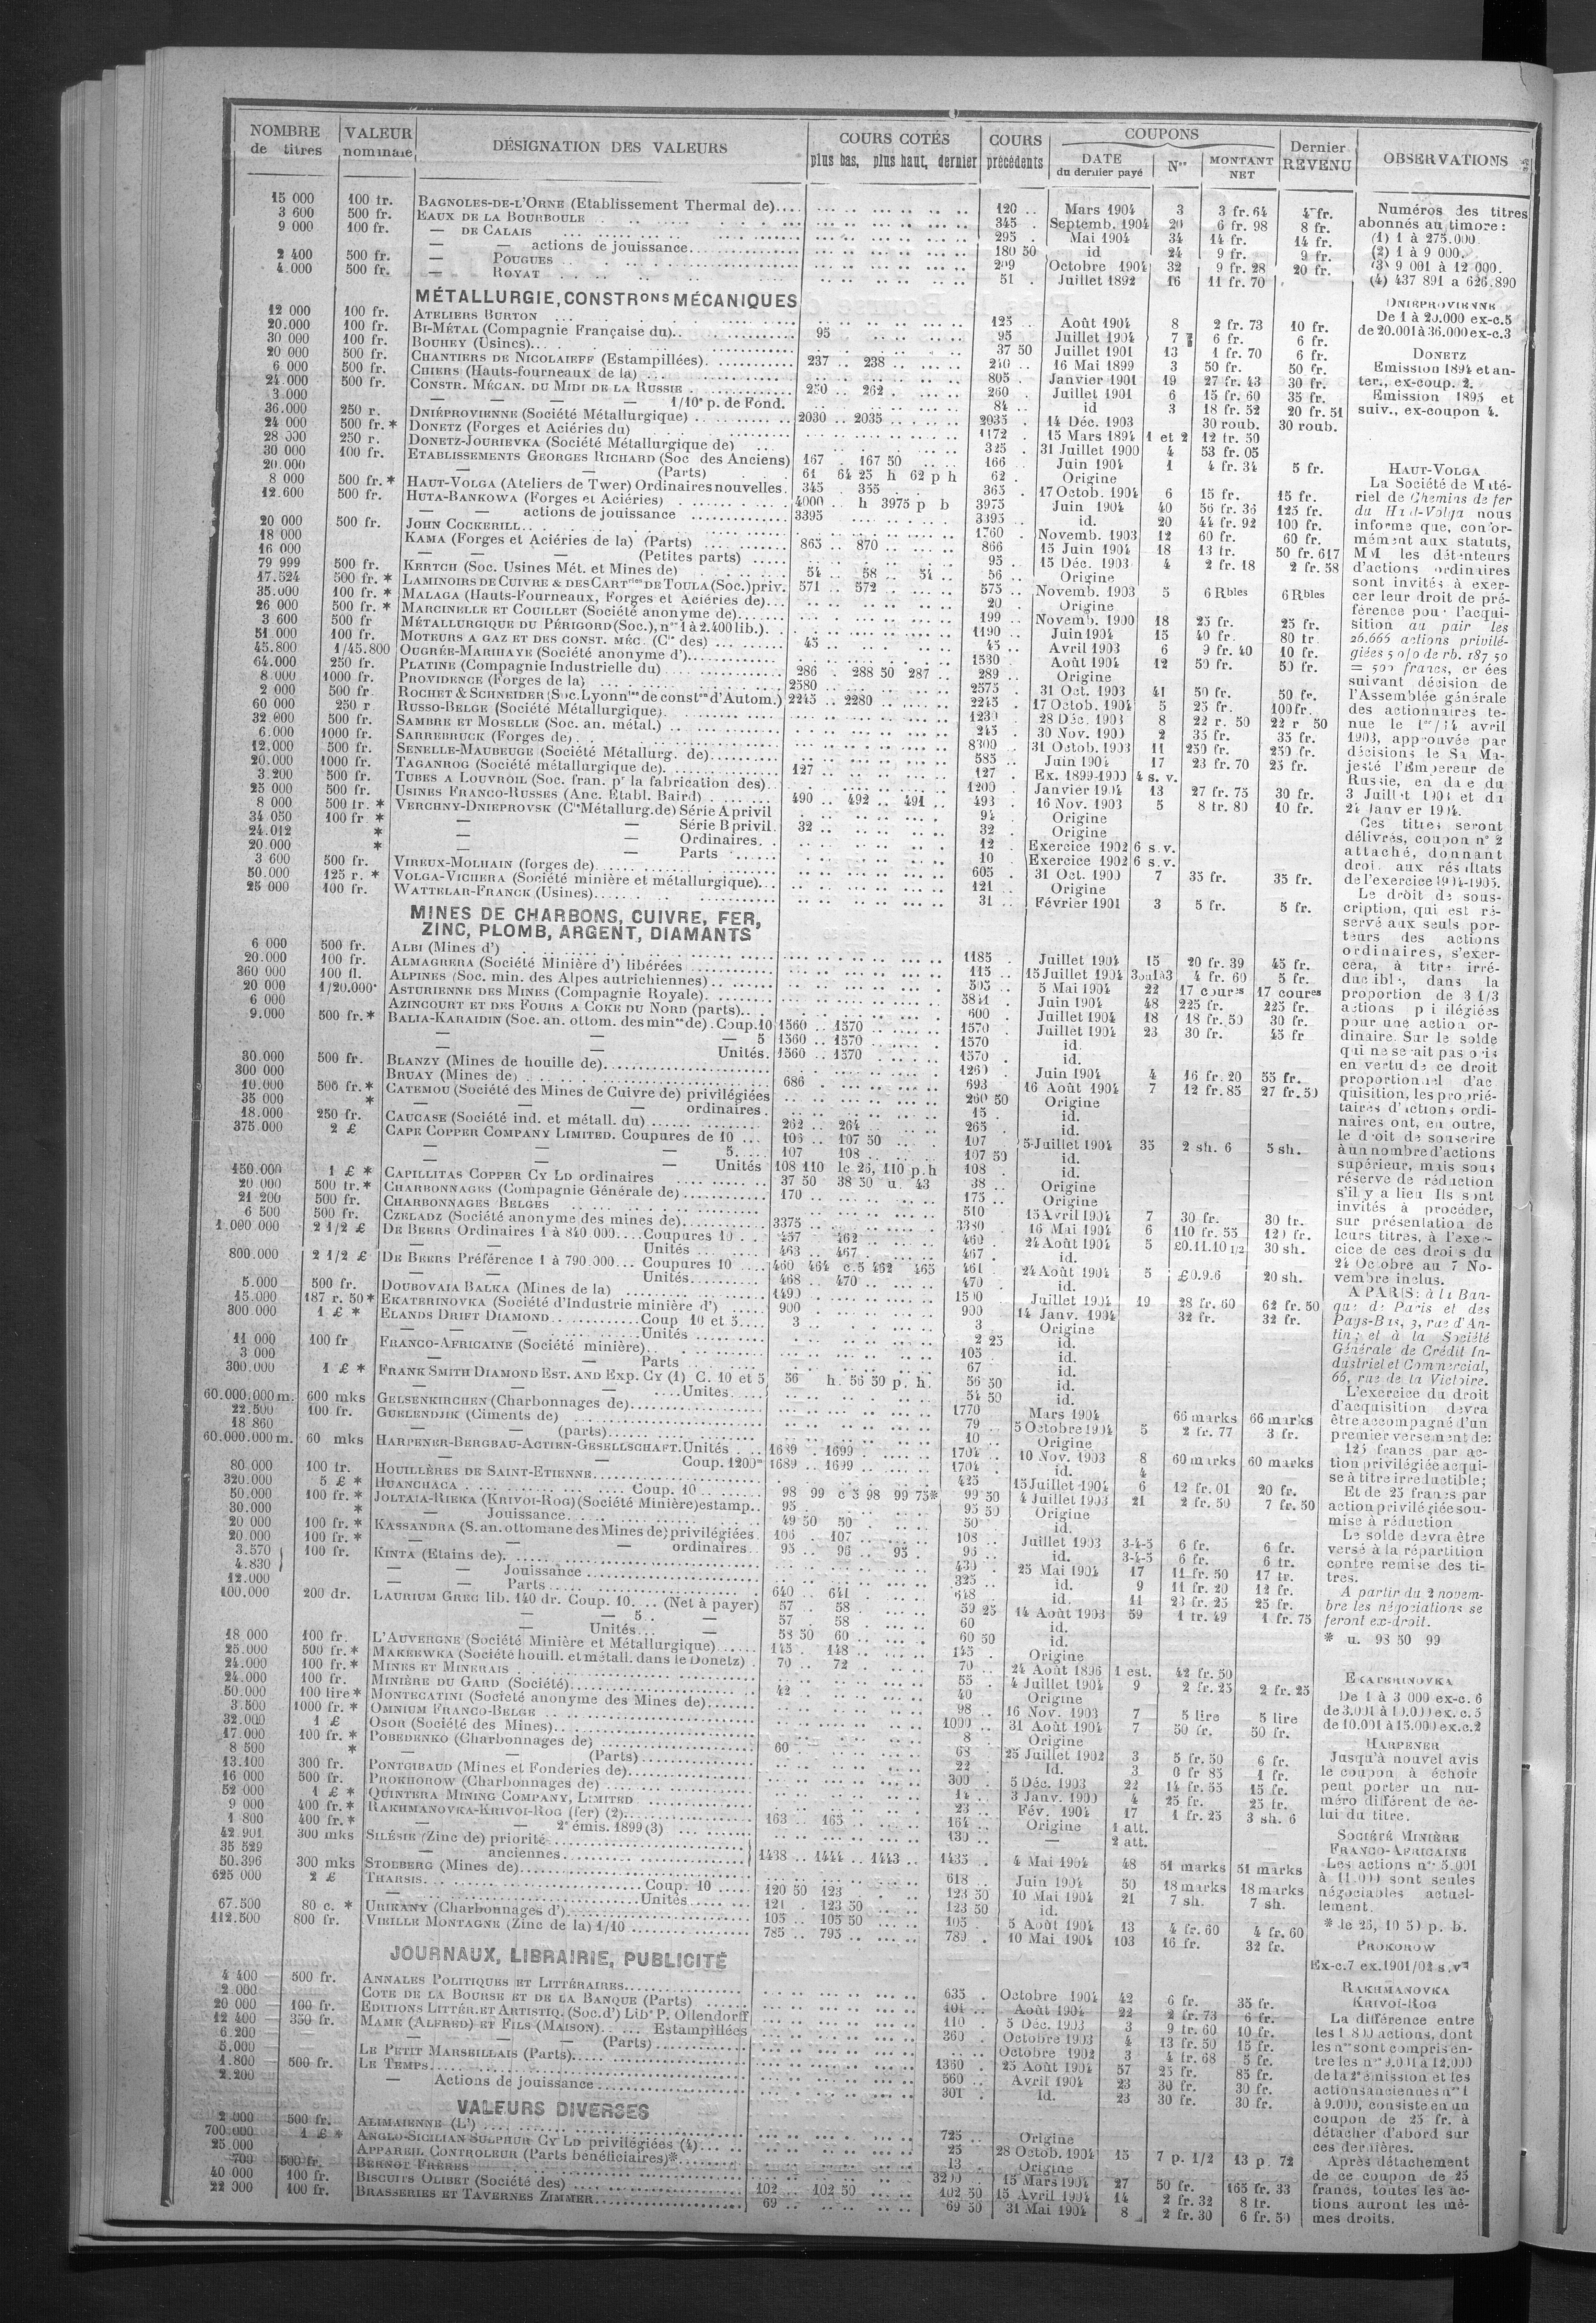 NOMBRE de titres | VALEUR nominale | DÉSIGNATION DES VALEURS | COURS COTÉS plus bas, plus haut, dernier | COURS précédents | COUPONS DATE du dernier payé | Nos | MONTANT NET | Dernier REVENU | OBSERVATIONS
15 000 100 fr. BAGNOLES-DE-L'ORNE (Etablissement Thermal de).... 120 .. Mars 1904 3 3 fr. 64 4 fr.
3 600 500 fr. EAUX DE LA BOURBOULE 345 . Septemb. 1904 20 6 fr. 98 8 fr.
9 000 100 fr. — DE CALAIS 295 . Mai 1904 34 14 fr. 14 fr.
— — actions de jouissance 180 50 id 24 9 fr. 9 fr.
2 400 500 fr. — POUGUES 209 Octobre 1904 32 9 fr. 28 20 fr.
4.000 500 fr. — ROYAT 51 . Juillet 1892 16 11 fr. 70
MÉTALLURGIE, CONSTRons MÉCANIQUES
12 000 100 fr. ATELIERS BURTON 125 .. Août 1904 8 2 fr. 73 10 fr.
20.000 100 fr. BI-MÉTAL (Compagnie Française du) 95 95 Juillet 1904 7 6 fr. 6 fr.
30 000 100 fr. BOUHEY (Usines) 37 50 Juillet 1901 13 1 fr. 70 6 fr.
20 000 500 fr. CHANTIERS DE NICOLAIEFF (Estampillées) 237 .. 238 .. 240 .. 16 Mai 1899 3 50 fr. 50 fr.
6 000 500 fr. CHIERS (Hauts-fourneaux de la) 805 . Janvier 1901 19 27 fr. 43 30 fr.
24.000 500 fr. CONSTR. MÉCAN. DU MIDI DE LA RUSSIE 250 .. 262 . 260 . Juillet 1901 6 15 fr. 60 35 fr.
3.000 — — — 1/10e p. de Fond. 84 .. id 3 18 fr. 52 20 fr. 51
36.000 250 r. DNIÉPROVIENNE (Société Métallurgique) 2030 .. 2035 2035 . 14 Déc. 1903 30 roub. 30 roub.
24 000 500 fr.* DONETZ (Forges et Aciéries du) 1172 . 15 Mars 1894 1 et 2 12 fr. 50
28 000 250 r. DONETZ-JOURIEVKA (Société Métallurgique de) 325 . 31 Juillet 1900 4 53 fr. 05
30 000 100 fr. ETABLISSEMENTS GEORGES RICHARD (Soc des Anciens) 167 . 167 50 166 .. Juin 1904 1 4 fr. 34 5 fr.
20.000 — — (Parts) 61 64 25 h 62 p h 62 . Origine
8 000 500 fr.* HAUT-VOLGA (Ateliers de Twer) Ordinaires nouvelles. 345 . 355 . 365 . 17 Octob. 1904 6 15 fr. 15 fr.
12.600 500 fr. HUTA-BANKOWA (Forges et Aciéries) 4000 .. h 3975 p b 3975 Juin 1904 40 56 fr. 36 125 fr.
— — actions de jouissance 3395 3395 .. id. 20 44 fr. 92 100 fr.
20 000 500 fr. JOHN COCKERILL 1760 . Novemb. 1903 12 60 fr. 60 fr.
18 000 KAMA (Forges et Aciéries de la) (Parts) 865 .. 870 866 15 Juin 1904 18 13 fr. 50 fr. 617
16 000 — — — (Petites parts) 95 .. 15 Déc. 1903 4 2 fr. 18 2 fr. 58
79 999 500 fr. KERTCH (Soc. Usines Mét. et Mines de) 54 .. 58 .. 54 .. 56 .. Origine
17.524 500 fr. * LAMINOIRS DE CUIVRE & DES CARTries DE TOULA (Soc.) priv. 571 .. 572 575 .. Novemb. 1903 5 6 Rbles 6 Rbles
35.000 100 fr. * MALAGA (Hauts-Fourneaux, Forges et Aciéries de) 20 . Origine
26 000 500 fr. * MARCINELLE ET COUILLET (Société anonyme de) 199 .. Novemb. 1900 18 25 fr. 25 fr.
3 600 500 fr MÉTALLURGIQUE DU PÉRIGORD (Soc.), nos 1 à 2.400 lib.) 1190 .. Juin 1904 15 40 fr. 80 fr.
51.000 100 fr. MOTEURS A GAZ ET DES CONST. MÉC. (Cie des) 45 45 .. Avril 1903 6 9 fr. 40 10 fr.
45.800 1/45.800 OUGRÉE-MARIHAYE (Société anonyme d') 1530 . Août 1904 12 50 fr. 50 fr.
64.000 250 fr. PLATINE (Compagnie Industrielle du) 286 . 288 50 287 .. 289 .. Origine
8.000 1000 fr. PROVIDENCE (Forges de la) 2580 2575 . 31 Oct. 1903 41 50 fr. 50 fr.
2 000 500 fr ROCHET & SCHNEIDER (Soc. Lyonnse de conston d'Autom.) 2245 .. 2280 2245 . 17 Octob. 1904 5 25 fr. 100 fr.
60 000 250 r RUSSO-BELGE (Société Métallurgique) 1230 . 28 Déc. 1903 8 22 r. 50 22 r 50
32.000 500 fr. SAMBRE ET MOSELLE (Soc. an. métal.) 245 . 30 Nov. 1900 2 35 fr. 35 fr.
6.000 1000 fr. SARREBRUCK (Forges de) 8300 .. 31 Octob. 1903 11 250 fr. 250 fr.
12.000 500 fr. SENELLE-MAUBEUGE (Société Métallurg. de) 585 .. Juin 1904 17 23 fr. 70 25 fr.
20.000 1000 fr. TAGANROG (Société métallurgique de) 127 127 . Ex. 1899-1900 4 s. v.
3.200 500 fr. TUBES A LOUVROIL (Soc. fran. pr la fabrication des) 1200 . Janvier 1904 13 27 fr. 75 30 fr.
25 000 500 fr. USINES FRANCO-RUSSES (Anc. Établ. Baird) 490 .. 492 .. 491 .. 493 . 16 Nov. 1903 5 8 fr. 80 10 fr.
8 000 500 fr. * VERCHNY-DNIEPROVSK (Cie Métallurg. de) Série A privil 94 . Origine
34 050 100 fr * — — Série B privil. 32 32 . Origine
24.012 * — — Ordinaires. 12 . Exercice 1902 6 s.v.
20.000 * — — Parts 10 . Exercice 1902 6 s.v.
3 600 500 fr. VIREUX-MOLHAIN (forges de) 605 . 31 Oct. 1900 7 35 fr. 35 fr.
50.000 125 r. * VOLGA-VICHERA (Société minière et métallurgique) 121 .. Origine
25 000 100 fr. WATTELAR-FRANCK (Usines) 31 . Février 1901 3 5 fr. 5 fr.
MINES DE CHARBONS, CUIVRE, FER,
ZINC, PLOMB, ARGENT, DIAMANTS
6 000 500 fr. ALBI (Mines d') 1185 Juillet 1904 15 20 fr. 39 45 fr.
20.000 100 fr. ALMAGRERA (Société Minière d') libérées 115 .. 15 Juillet 1904 4 fr. 60 5 fr.
360 000 100 fl. ALPINES (Soc. min. des Alpes autrichiennes) 505 .. 5 Mai 1904 22 17 coures 17 coures
20 000 1/20.000e ASTURIENNE DES MINES (Compagnie Royale) Juin 1904 48 225 fr. 225 fr.
6 000 AZINCOURT ET DES FOURS A COKE DU NORD (parts) 600 . Juillet 1904 18 18 fr. 50 30 fr.
9.000 500 fr.* BALIA-KARAIDIN (Soc. an. ottom. des mines de) . Coup. 10 1560 .. 1570 1570 . Juillet 1904 23 30 fr. 45 fr
— — — 5 1560 .. 1570 1570 id.
— — Unités. 1560 .. 1570 1570 . id.
30.000 500 fr. BLANZY (Mines de houille de) 1260 . Juin 1904 4 16 fr. 20 55 fr.
300 000 BRUAY (Mines de) 686 693 16 Août 1904 7 12 fr. 85 27 fr. 50
10.000 500 fr.* CATEMOU (Société des Mines de Cuivre de) privilégiées 260 50 Origine
35 000 * — — ordinaires. 15 . id.
18.000 250 fr. CAUCASE (Société ind. et métall. du) 262 .. 264 265 . id.
375.000 2 £ CAPE COPPER COMPANY LIMITED. Coupures de 10 106 .. 107 50 107 5 Juillet 1904 35 2 sh. 6 5 sh.
— — — 5 107 108 107 50 id.
— — — Unités 108 110 le 26, 110 p.h 108 . id.
150.000 1 £ * CAPILLITAS COPPER CY LD ordinaires 37 50 38 50 u. 43 38 .. Origine
20.000 500 fr.* CHARBONNAGES (Compagnie Générale de) 170 175 .. Origine
21 200 500 fr. CHARBONNAGES BELGES 510 15 Avril 1904 7 30 fr. 30 fr.
6 500 500 fr. CZELADZ (Société anonyme des mines de) 3375 3380 16 Mai 1904 6 110 fr. 55 120 fr.
1.000 000 2 1/2 £ DE BEERS Ordinaires 1 à 840 000....Coupures 10 457 462 460 . 24 Août 1904 5 £0.11.10 1/2 30 sh.
— Unités 463 .. 467 467 . id.
800.000 2 1/2 £ DE BEERS Préférence 1 à 790.000... Coupures 10 460 464 c.5 462 465 461 24 Août 1904 5 £0.9.6 20 sh.
— Unités 468 .. 470 470 . id.
5.000 500 fr. DOUBOVAIA BALKA (Mines de la) 1490 1500 Juillet 1904 19 28 fr. 60 62 fr. 50
15.000 187 r. 50* EKATERINOVKA (Société d'Industrie minière d') 900 900 14 Janv. 1904 32 fr. 32 fr.
300 000 1 £ * ELANDS DRIFT DIAMOND Coup 10 et 5 3 3 Origine
— — Unités 2 25 id.
11 000 100 fr FRANCO-AFRICAINE (Société minière) 105 . id.
3 000 — — Parts 67 id.
300.000 1 £ * FRANK SMITH DIAMOND EST. AND EXP. CY (1) C. 10 et 5 56 h. 56 50 p. h. 56 50 id.
— — Unités 54 50 id.
60.000.000 m. 600 mks GELSENKIRCHEN (Charbonnages de) 1770 Mars 1904 66 marks 66 marks
22.500 100 fr. GUELENDJIK (Ciments de) 79 5 Octobre 1904 5 2 fr. 77 3 fr.
18 860 — — (parts) 10 Origine
60.000.000 m. 60 mks HARPENER-BERGBAU-ACTIEN-GESELLSCHAFT. Unités 1689 . 1699 1704 . 10 Nov. 1903 8 60 marks 60 marks
— Coup. 1200m 1689 .. 1699 1704 . id. 4
80.000 100 fr. HOUILLÈRES DE SAINT-ETIENNE 425 15 Juillet 1904 6 12 fr. 01 20 fr.
320.000 5 £ * HUANCHACA Coup. 10 98 99 c 5 98 99 75* 99 50 4 Juillet 1903 21 2 fr. 50 7 fr. 50
50.000 100 fr. * JOLTAIA-RIEKA (KRIVOI-ROG) (Société Minière) estamp.. 95 95 50 Origine
30.000 * — — Jouissance 49 50 50 50 id.
20 000 100 fr. * KASSANDRA (S. an. ottomane des Mines de) privilégiées. 106 . 107 108 .. Juillet 1903 3-4-5 6 fr. 6 fr.
20.000 100 fr. * — — ordinaires.. 95 .. 96 .. 95 . 95 .. id. 3-4-5 6 fr. 6 fr.
3.570 100 fr. KINTA (Etains de) 430 .. 25 Mai 1904 17 11 fr. 50 17 fr.
4.830 — — Jouissance 325 .. id. 9 11 fr. 20 12 fr.
12.000 — — Parts 640 641 648 . id. 11 23 fr. 25 25 fr.
100.000 200 dr. LAURIUM GREC lib. 140 dr. Coup. 10... (Net à payer) 57 . 58 59 25 14 Août 1903 59 1 fr. 49 1 fr. 75
— — 5 .. — 57 58 60 id.
— — Unités... — 58 50 60 60 50 id.
18 000 100 fr. L'AUVERGNE (Société Minière et Métallurgique) 145 . 148 145 . Origine
25.000 500 fr. * MAKEEWKA (Société houill. et métall. dans le Donetz) 70 .. 72 70 .. 24 Août 1896 1 est. 42 fr. 50
24.000 100 fr. * MINES ET MINERAIS 55 . 4 Juillet 1904 9 2 fr. 25 2 fr. 25
24.000 100 fr. MINIÈRE DU GARD (Société) 42 40 Origine
50.000 100 lire * MONTECATINI (Société anonyme des Mines de) 98 .. 16 Nov. 1903 7 5 lire 5 lire
3.500 1000 fr. * OMNIUM FRANCO-BELGE 1000 .. 31 Août 1904 7 50 fr. 50 fr.
32.000 1 £ OSOR (Société des Mines) 8 Origine
17.000 100 fr. * POBEDENKO (Charbonnages de) 60 68 25 Juillet 1902 3 5 fr. 50 6 fr.
8 500 * — — (Parts) 22 Id. 3 0 fr 85 1 fr.
13.100 300 fr. PONTGIBAUD (Mines et Fonderies de) 300 . 5 Déc. 1903 22 14 fr. 55 15 fr.
16 000 500 fr. PROKHOROW (Charbonnages de) 14 . 3 Janv. 1900 4 25 fr. 25 fr.
52 000 1 £ * QUINTERA MINING COMPANY, LIMITED 23 .. Fév. 1904 17 1 fr. 25 3 sh. 6
9 000 400 fr. * RAKHMANOVKA-KRIVOI-ROG (fer) (2) 163 165 164 . Origine 1 att.
1 800 400 fr. * — — 2e émis. 1899 (3) 130 .. — 2 att.
42 901 300 mks SILÉSIE (Zinc de) priorité 1438 .. 1444 .. 1443 .. 1435 . 4 Mai 1904 48 51 marks 51 marks
35 529 — anciennes
50.396 300 mks STOLBERG (Mines de) 618 .. Juin 1904 50 18 marks 18 marks
625 000 2 £ THARSIS Coup. 10 120 50 123 123 50 10 Mai 1904 21 7 sh. 7 sh.
— Unités 121 . 123 50 123 50 id.
67.500 80 c. * URIKANY (Charbonnages d') 105 .. 105 50 105 . 5 Août 1904 13 4 fr. 60 4 fr. 60
112.500 800 fr. VIEILLE MONTAGNE (Zinc de la) 1/10 785 .. 795 789 . 10 Mai 1904 103 16 fr. 32 fr.
JOURNAUX, LIBRAIRIE, PUBLICITÉ
4 400 500 fr. ANNALES POLITIQUES ET LITTÉRAIRES 635 . Octobre 1904 42 6 fr. 35 fr.
2.000 COTE DE LA BOURSE ET DE LA BANQUE (Parts) 101 .. Août 1904 22 2 fr. 73 6 fr.
20 000 100 fr. EDITIONS LITTÉR. ET ARTISTIQ. (Soc. d') Libe P. Ollendorff 110 . 5 Déc. 1903 3 9 fr. 60 10 fr.
12 400 350 fr. MAME (ALFRED) ET FILS (MAISON) Estampillées 360 . Octobre 1903 4 13 fr. 50 15 fr.
6.200 — — — (Parts) Octobre 1902 3 4 fr. 68 5 fr.
5.000 LE PETIT MARSEILLAIS (Parts) 1360 . 25 Août 1904 57 25 fr. 85 fr.
1.800 500 fr. LE TEMPS 560 .. Avril 1904 23 30 fr. 30 fr.
2.200 — Actions de jouissance 301 . Id. 23 30 fr. 30 fr.
VALEURS DIVERSES
2 000 500 fr. ALIMAIENNE (L') 725 .. Origine
700.000 1 £ * ANGLO-SICILIAN SULPHUR CY LD privilégiées (4) 25 28 Octob. 1904 15 7 p. 1/2 13 p. 72
25.000 APPAREIL CONTROLEUR (Parts bénéficiaires)* 13 . Origine
700 500 fr. BERNOT FRÈRES 3200 . 15 Mars 1904 27 50 fr. 165 fr. 33
40 000 100 fr. BISCUITS OLIBET (Société des) 102 .. 102 50 102 50 15 Avril 1904 14 2 fr. 32 8 fr.
22 000 100 fr. BRASSERIES ET TAVERNES ZIMMER 69 69 50 31 Mai 1904 8 2 fr. 30 6 fr. 50
Numéros des titres
abonnés au timbre :
(1) 1 à 275.000.
(2) 1 à 9 000.
(3) 9 001 à 12 000.
(4) 437 891 a 626.890
DNIÉPROVIENNE
De 1 à 20.000 ex-c.5
de 20.001 à 36.000 ex-c.3
DONETZ
Emission 1894 et an-
ter., ex-coup. 2.
Emission 1895 et
suiv., ex-coupon 4.
HAUT-VOLGA
La Société de Maté-
riel de Chemins de fer
du Haut-Volga nous
informe que, confor-
mément aux statuts,
MM les détenteurs
d'actions ordinaires
sont invités à exer-
cer leur droit de pré-
férence pour l'acqui-
sition au pair les
26.666 actions privilé-
giées 5 0/0 de rb. 187,50
= 500 francs, créées
suivant décision de
l'Assemblée générale
des actionnaires te-
nue le 1er/14 avril
1903, approuvée par
décisions de Sa Ma-
jesté l'Empereur de
Russie, en date du
3 Juillet 1903 et du
24 Janvier 1904.
Ces titres seront
délivrés, coupon n° 2
attaché, donnant
droit aux résultats
de l'exercice 1904-1905.
Le droit de sous-
cription, qui est ré-
servé aux seuls por-
teurs des actions
ordinaires, s'exer-
cera, à titre irré-
ductible, dans la
proportion de 3 1/3
actions privilégiées
pour une action or-
dinaire. Sur le solde
qui ne serait pas pris
en vertu de ce droit
proportionnel d'ac
quisition, les proprié-
taires d'actions ordi-
naires ont, en outre,
le droit de souscrire
à un nombre d'actions
supérieur, mais sous
réserve de réduction
s'il y a lieu Ils sont
invités à procéder,
sur présentation de
leurs titres, à l'exer-
cice de ces droits du
24 Octobre au 7 No-
vembre inclus.
A PARIS : à la Ban-
que de Paris et des
Pays-Bas, 3, rue d'An-
tin ; et à la Société
Générale de Crédit In-
dustriel et Commercial,
66, rue de la Victoire.
L'exercice du droit
d'acquisition devra
être accompagné d'un
premier versement de:
125 francs par ac-
tion privilégiée acqui-
se à titre irréductible;
Et de 25 francs par
action privilégiée sou-
mise à réduction
Le solde devra être
versé à la répartition
contre remise des ti-
tres.
A partir du 2 novem-
bre les négociations se
feront ex-droit.
* u. 98 50 99
EKATERINOVKA
De 1 à 3 000 ex-c. 6
de 3.001 à 10.000 ex. c. 5
de 10.001 à 15.000 ex. c.2
HARPENER
Jusqu'à nouvel avis
le coupon à échoir
peut porter un nu-
méro différent de ce-
lui du titre.
SOCIÉTÉ MINIÈRE
FRANCO-AFRICAINE
Les actions nos 5.001
à 11.000 sont seules
négociables actuel-
lement.
* le 26, 10 50 p. b.
PROKOROW
Ex-c.7 ex.1901/02 s.v
RAKHMANOVKA
KRIVOI-ROG
La différence entre
les 1 800 actions, dont
les nos sont compris en-
tre les nos 9.001 à 12.000
de la 2e émission et les
actions anciennes nos 1
à 9.000, consiste en un
coupon de 25 fr. à
détacher d'abord sur
ces dernières.
Après détachement
de ce coupon de 25
francs, toutes les ac-
tions auront les mê-
mes droits.